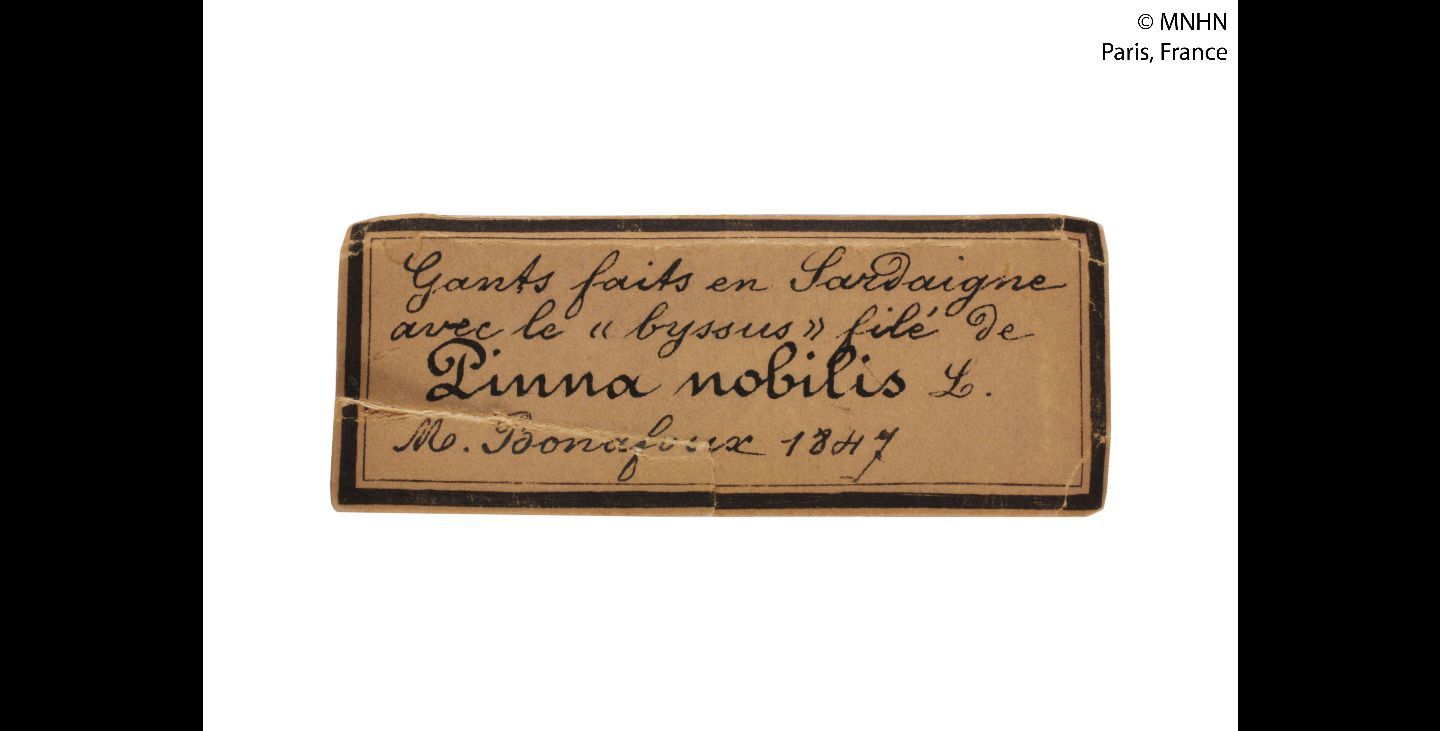 © MNHN
Paris, France
Gants faits en Sardaigne
avec le « byssus » filé de
Pinna nobilis L.
M. Bonafoux 1847